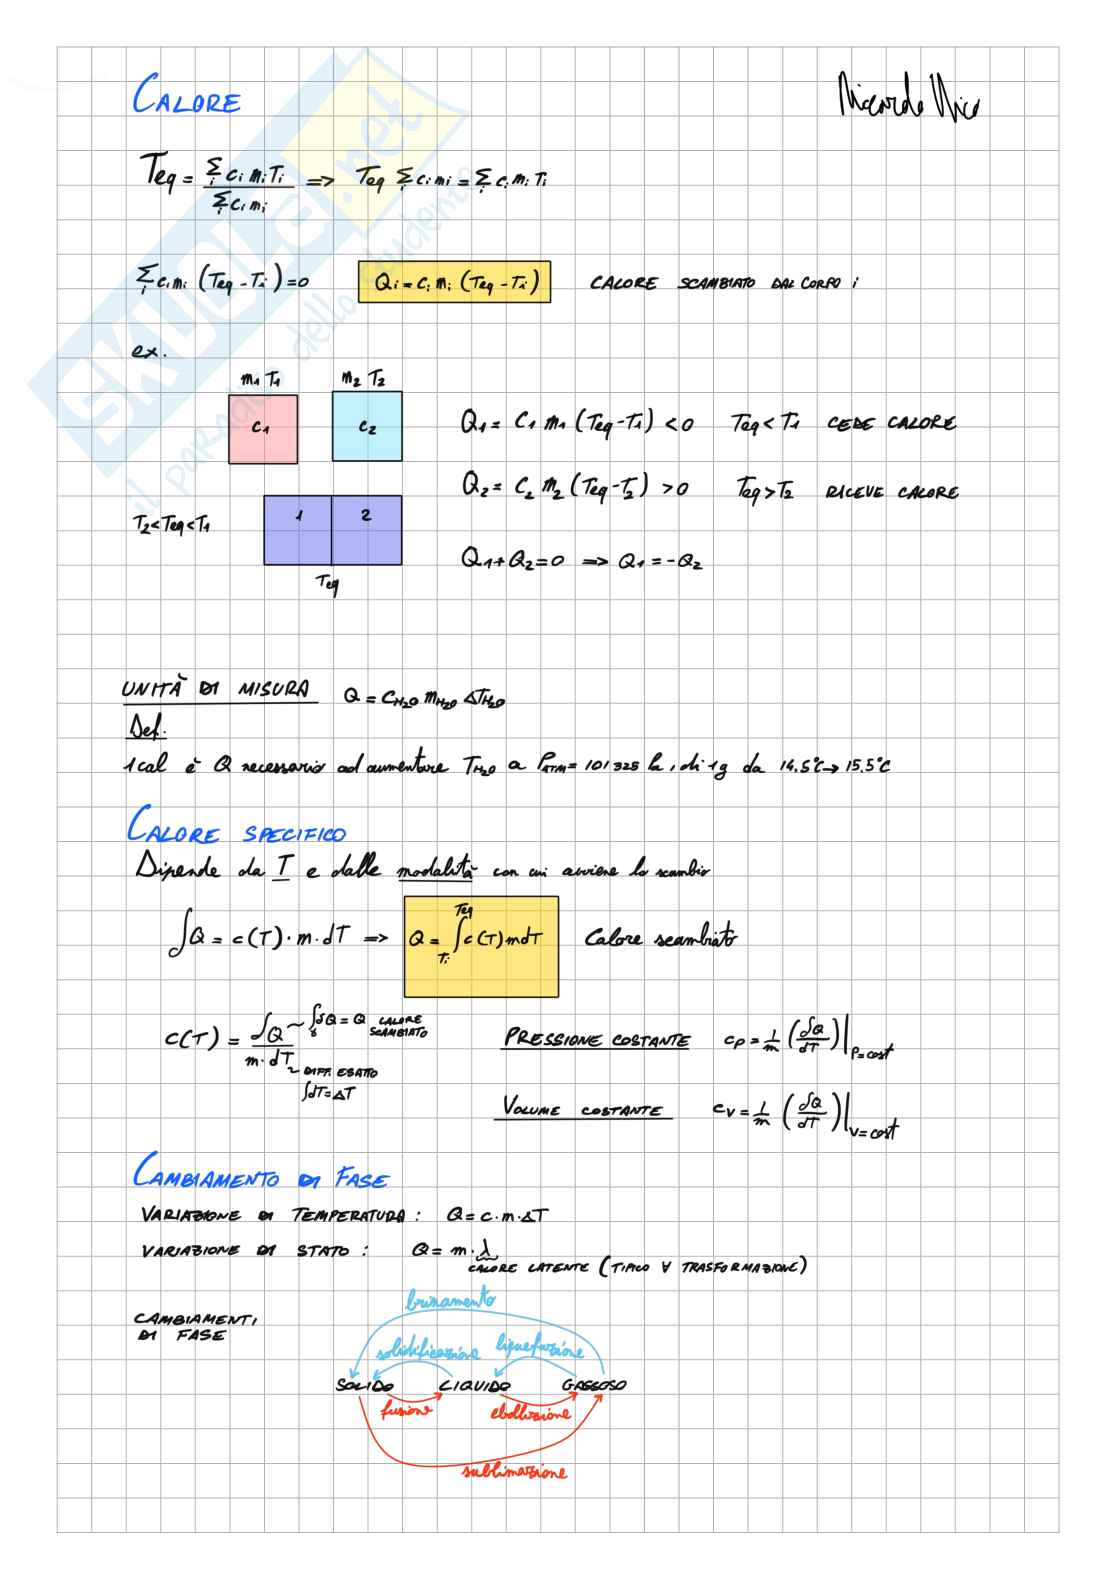 CALORE
Teq = Σi ci mi Ti / Σi ci mi => Teq Σi ci mi = Σi ci mi Ti
Σi ci mi (Teq - Ti) = 0 Qi = ci mi (Teq - Ti) CALORE SCAMBIATO DAL CORPO i
ex.
m1 T1 m2 T2
c1 c2 Q1 = C1 m1 (Teq - T1) < 0 Teq < T1 CEDE CALORE
Q2 = C2 m2 (Teq - T2) > 0 Teq > T2 RICEVE CALORE
T2 < Teq < T1 1 2
Q1 + Q2 = 0 => Q1 = -Q2
Teq
UNITÀ DI MISURA Q = CH2O mH2O ΔTH2O
Def.
1 cal è Q necessario ad aumentare TH2O a PATM = 101325 Pa, di 1g da 14.5°C → 15.5°C
CALORE SPECIFICO
Dipende da T e dalle modalità con cui avviene lo scambio
δQ = c(T) · m · dT => Q = ∫Ti Teq c(T) m dT Calore scambiato
c(T) = δQ / m · dT ∫γ δQ = Q CALORE SCAMBIATO
DIFF. ESATTO
∫dT = ΔT
PRESSIONE COSTANTE cp = 1/m (δQ/dT)|p=cost
VOLUME COSTANTE cv = 1/m (δQ/dT)|V=cost
CAMBIAMENTO DI FASE
VARIAZIONE DI TEMPERATURA: Q = c · m · ΔT
VARIAZIONE DI STATO: Q = m · λ
CALORE LATENTE (TIPICO ∀ TRASFORMAZIONE)
CAMBIAMENTI
DI FASE
brinamento
solidificazione liquefazione
SOLIDO LIQUIDO GASSOSO
fusione ebollizione
sublimazione
SKUOLA.net
il paradiso dello studente